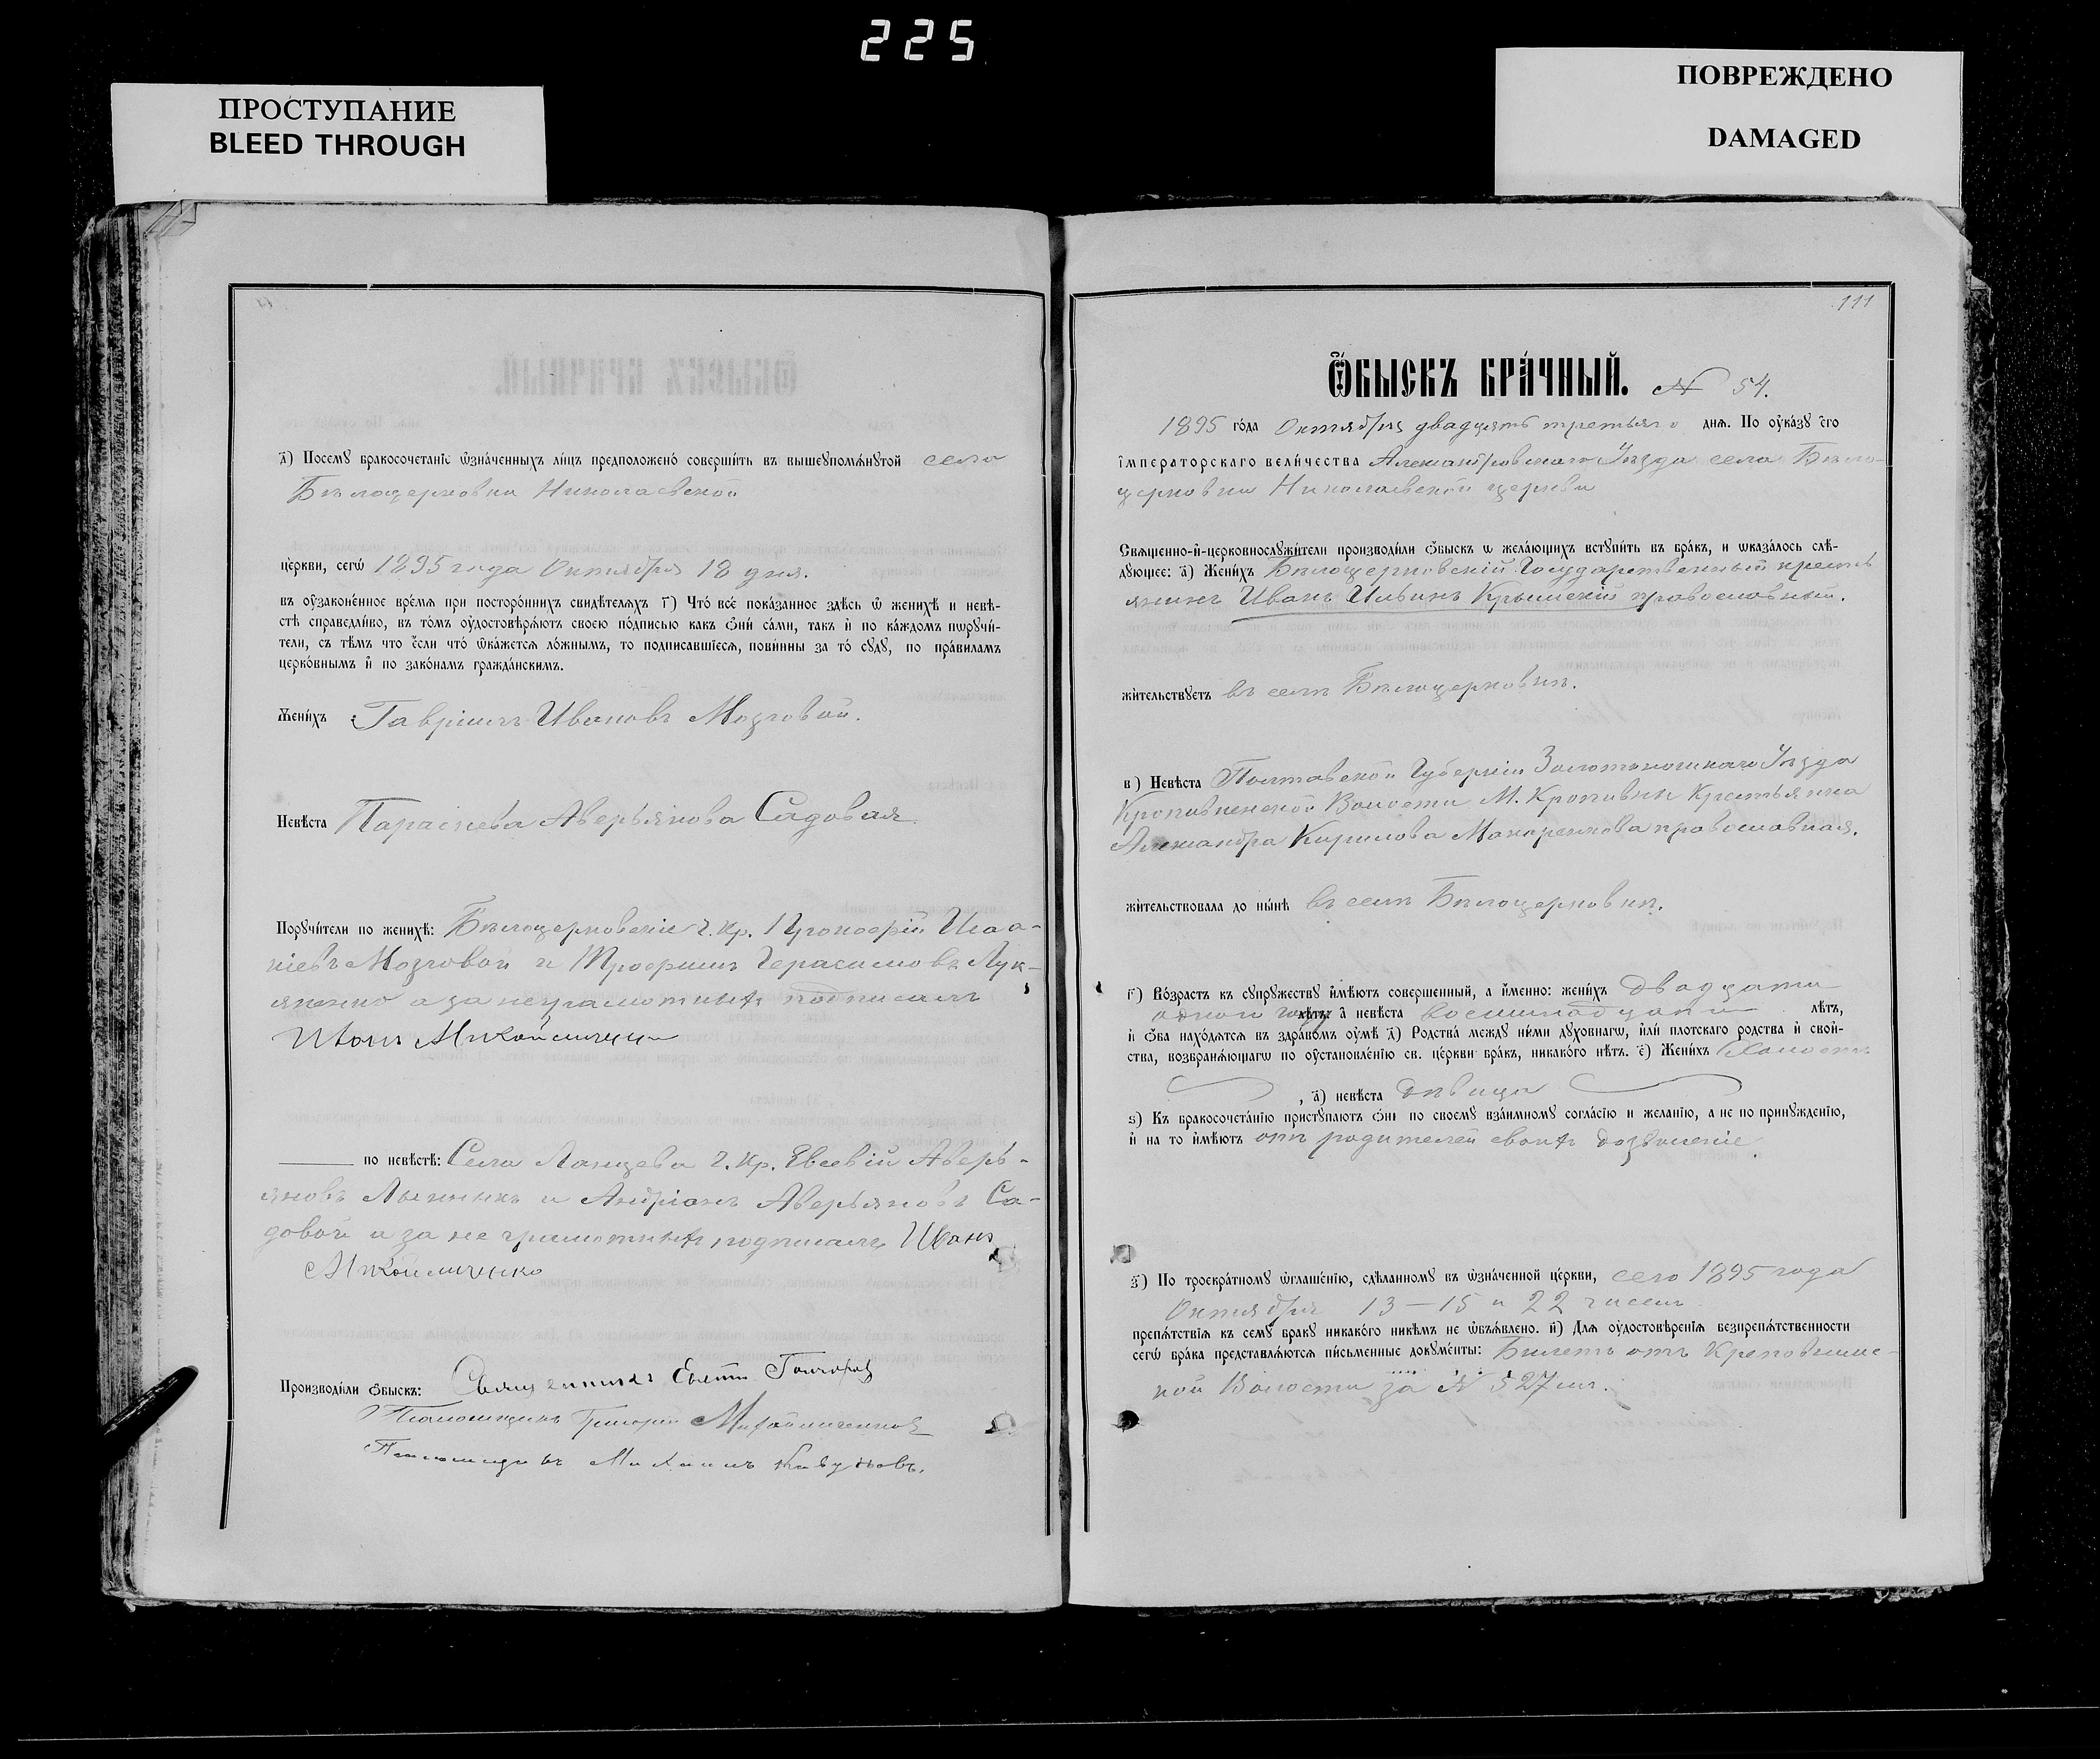 225
ПРОСТУПАНИЕ
BLEED THROUGH
ПОВРЕЖДЕНО
DAMAGED
а҃) Посемꙋ бракосочетанїе ѡ҆зна́ченныхъ ли́цъ предположено̀ соверши́ть въ вышеꙋпомѧ́нꙋтой села
Бѣлоцерковки Николаевской
це́ркви, сегѡ̀ 1895 года Октября 18 дня.
въ ᲂу҆зако́ненное вре́мѧ при посторо́ннихъ свидѣ́телѧхъ г҃) Что̀ всѐ пока́занное здѣ́сь ѡ҆ женихѣ̀ и невѣ́-
стѣ справедли́во, въ то́мъ ᲂу҆достовѣрѧ́ютъ своею по́дписью какъ ѻ҆нѝ са́ми, такъ и҆ по ка́ждомъ пѡрꙋчи́-
тели, съ тѣ́мъ что є҆́сли что̀ ѡ҆ка́жетсѧ ло́жнымъ, то подписа́вшїесѧ, пови́нны за то̀ сꙋдꙋ̀, по пра́виламъ
церко́внымъ и҆ по зако́намъ гражда́нскимъ.
Жени́хъ Гавріилъ Ивановъ Мозговой.
Невѣ́ста Параскева Аверьянова Садовая
Порꙋчи́тели по женихѣ̀: Бѣлоцерковскіе г. кр. Прокофій Исаа-
кіевъ Мозговой и Трофимъ Герасимовъ Лук-
яненко а за неграмотныхъ подписалъ
Иванъ
по невѣ́стѣ: Села г. кр. Евсевій Аверь-
яновъ и Андріанъ Аверьяновъ Са-
довой а за не грамотныхъ подписалъ Иванъ
Производи́ли ѻ҆́быскъ: Священникъ
Псаломщикъ Григорій
Псаломщикъ Михаилъ Кавуновъ.
111
Ѻ҆́БЫСКЪ БРА́ЧНЫЙ. № 54.
1895 го́да Октября двадцать третьяго днѧ. По ᲂу҆ка́зꙋ є҆гѡ̀
і҆мператорскаго вели́чества Александровскаго Уѣзда села Бѣло-
церковки Николаевской церкви
Свѧще́нно-и҆-церковнослꙋжи́тели производи́ли ѻ҆́быскъ ѡ҆ жела́ющихъ встꙋпи́ть въ бра́къ, и ѡ҆каза́лось слѣ́-
дꙋющее: а҃) Жени́хъ Бѣлоцерковскій Государственный кресть
янинъ Иванъ Ильинъ Крымскій православный.
жи́тельствꙋетъ въ селѣ Бѣлоцерковкѣ.
в҃) Невѣ́ста Полтавской Губерніи Золотоношскаго Уѣзда
Кропивненской Волости М. Кропивны Крестьянка
Александра Кирилова Макаренкова православная.
жи́тельствовала до ны́нѣ въ селѣ Бѣлоцерковкѣ.
г҃) Во́зрастъ къ сꙋпрꙋ́жествꙋ и҆мѣ́ютъ соверше́нный, а и҆́менно: жени́хъ двадцати
одного года а̀ невѣ́ста восемнадцати лѣ́тъ,
и҆ ѻ҆́ба нахо́дѧтсѧ въ здра́вомъ ᲂу҆мѣ̀ д҃) Родства̀ междꙋ ни́ми дꙋхо́внагѡ, и҆лѝ пло́тскаго родства и҆ свой-
ства̀, возбранѧ́ющагѡ по ᲂу҆становле́нїю св. це́ркви бра́къ, никако́го нѣ́тъ. є҃) Жени́хъ холостъ
, а҃) невѣ́ста дѣвица
ѕ҃) Къ бракосочета́нїю пристꙋпа́ютъ ѻ҆нѝ по своемꙋ̀ взаи́мномꙋ согла́сїю и жела́нїю, а не по принꙋжде́нїю,
и҆ на то и҆мѣ́ютъ отъ родителей своихъ дозволеніе.
з҃) По троекра́тномꙋ ѡ҆глаше́нїю, сдѣ́ланномꙋ въ ѡ҆зна́ченной це́ркви, сего 1895 года
Октября 13 — 15 и 22 чиселъ
препѧ́тствїѧ къ семꙋ̀ бра́кꙋ никако́го никѣ́мъ не ѡ҆бъѧ́влено. и҃) Длѧ ᲂу҆достовѣре́нїѧ безпрепѧ́тственности
сегѡ̀ бра́ка представлѧ́ютсѧ пи́сьменные докꙋме́нты: Билетъ отъ
кой Волости за № 527